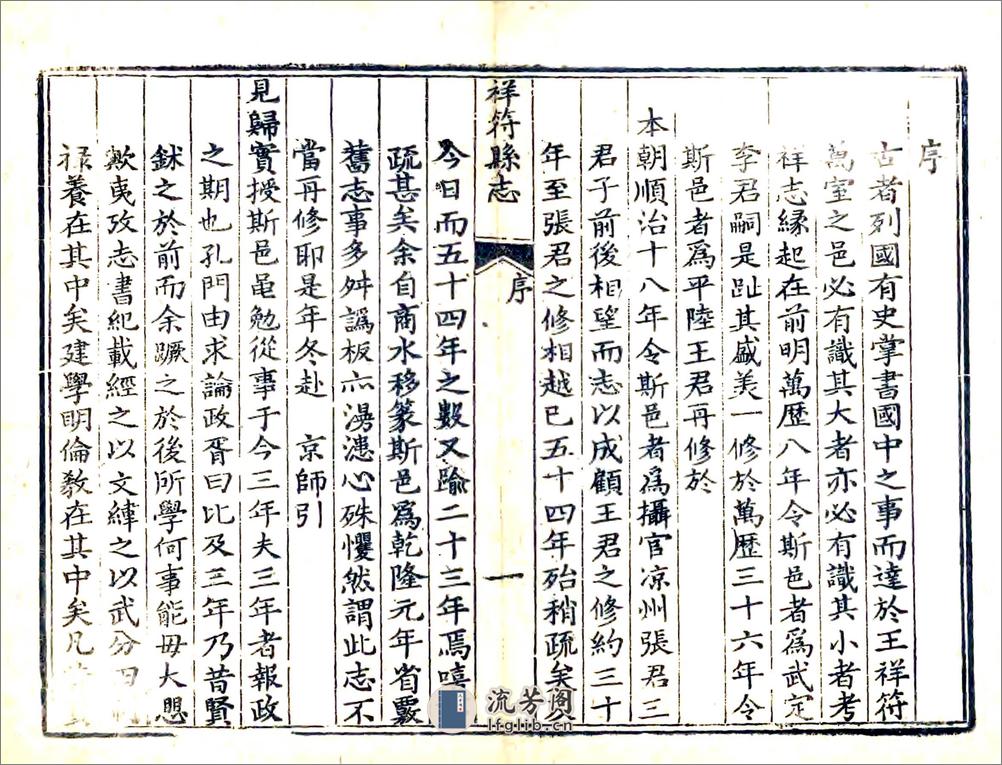 序
古者列國有史掌書國中之事而達於王祥符
萬室之邑必有識其大者亦必有識其小者考
祥志緣起在前明萬歷八年令斯邑者爲武定
李君嗣是趾其盛美一修於萬歷三十六年令
斯邑者爲平陸王君再修於
本朝順治十八年令斯邑者爲攝官凉州張君三
君子前後相望而志以成顧王君之修約三十
年至張君之修相越已五十四年殆稍疏矣
祥符縣志
序
一
今日而五十四年之數又踰二十三年焉嘻
疏甚矣余自商水移篆斯邑爲乾隆元年省覈
舊志事多舛譌板亦湯漶心殊懼然謂此志不
當再修耶是年冬赴 京師引
見歸實授斯邑黽勉從事于今三年夫三年者報政
之期也孔門由求論政胥曰比及三年乃昔賢
鉥之於前而余蹶之於後所學何事能毋大恧
歟夷攷志書紀載經之以文緯之以武分田
禄養在其中矣建學明倫敎在其中矣凡
流芳阁
lfglib.cn